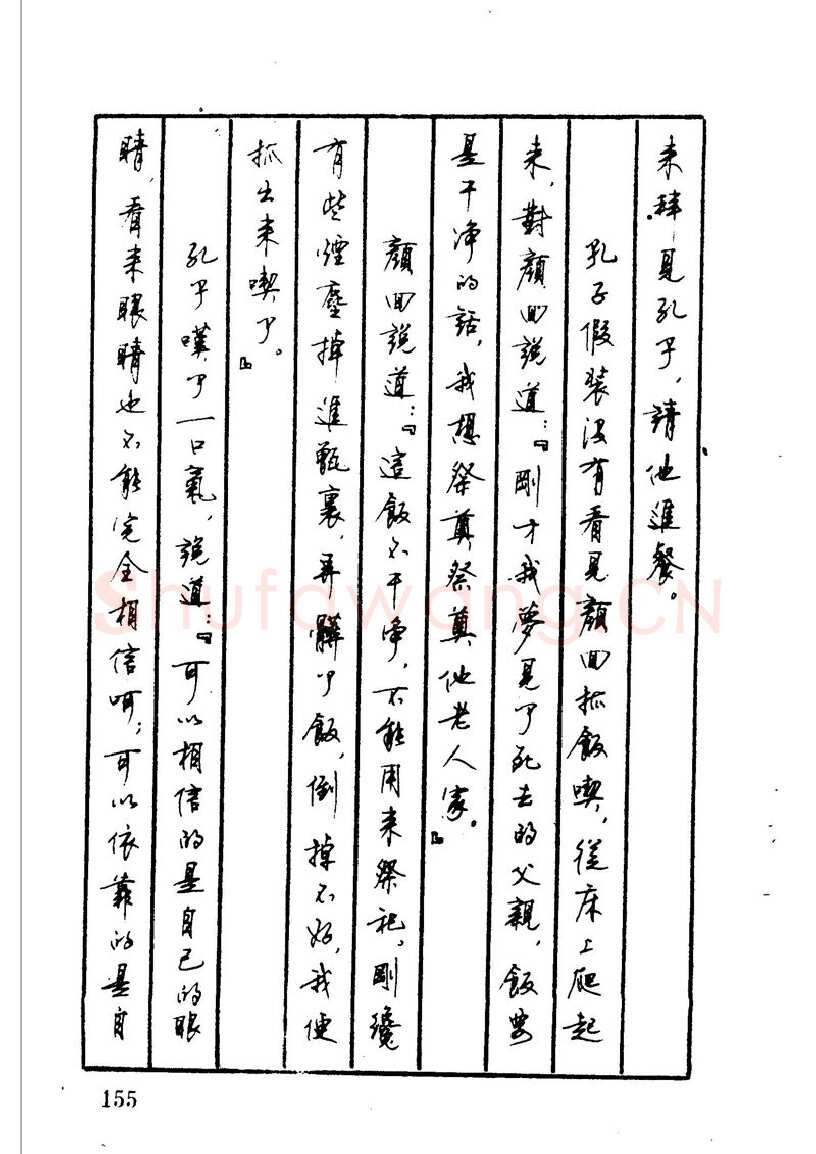 来拜見孔子，請他進餐。
孔子假装没有看見顔回抓飯喫，從床上爬起
来，對顔回説道：『剛才我夢見了死去的父親，飯要
是干净的話，我想祭奠祭奠他老人家。』
顔回説道：『這飯不干净，不能用来祭祀。剛纔
有些煙塵掉進甑裏，弄髒了飯，倒掉不好，我便
抓出来喫了。』
孔子嘆了一口氣，説道：『可以相信的是自己的眼
睛，看来眼睛也不能完全相信呵；可以依靠的是自
155
Shufawang.CN